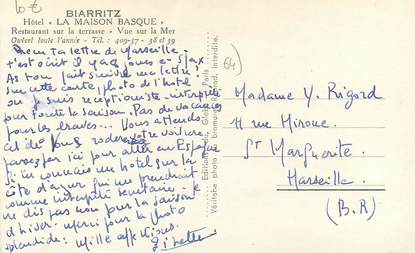 10€
BIARRITZ
Hôtel « LA MAISON BASQUE »
Restaurant sur la terrasse - Vue sur la Mer
Ouvert toute l'année - Tél. : 409-37 - 38 et 39
Reçu ta lettre de Marseille.
t'écrit il y a jours
As ton fait suivre ma lettre
sur cette carte, photo de l'hôtel
où je suis réceptionniste interprète
pour toute la saison. Pas de vacances
pour les braves... Vous attends
voiture
passez par ici pour aller en Espagne
Si tu connais un hôtel sur la
Côte d'azur qui me prendrait
comme interprète secrétaire. Je
ne dis pas non pour la saison
d'hiver. Merci pour la photo
splendide. Mille affections.
Ginette
Editions d'Art Globe Paris
Véritable photo au bromure Reprod. interdite.
(64)
Madame Y. Rigord
11 rue Miroue
St Marguerite
Marseille
(B.R)